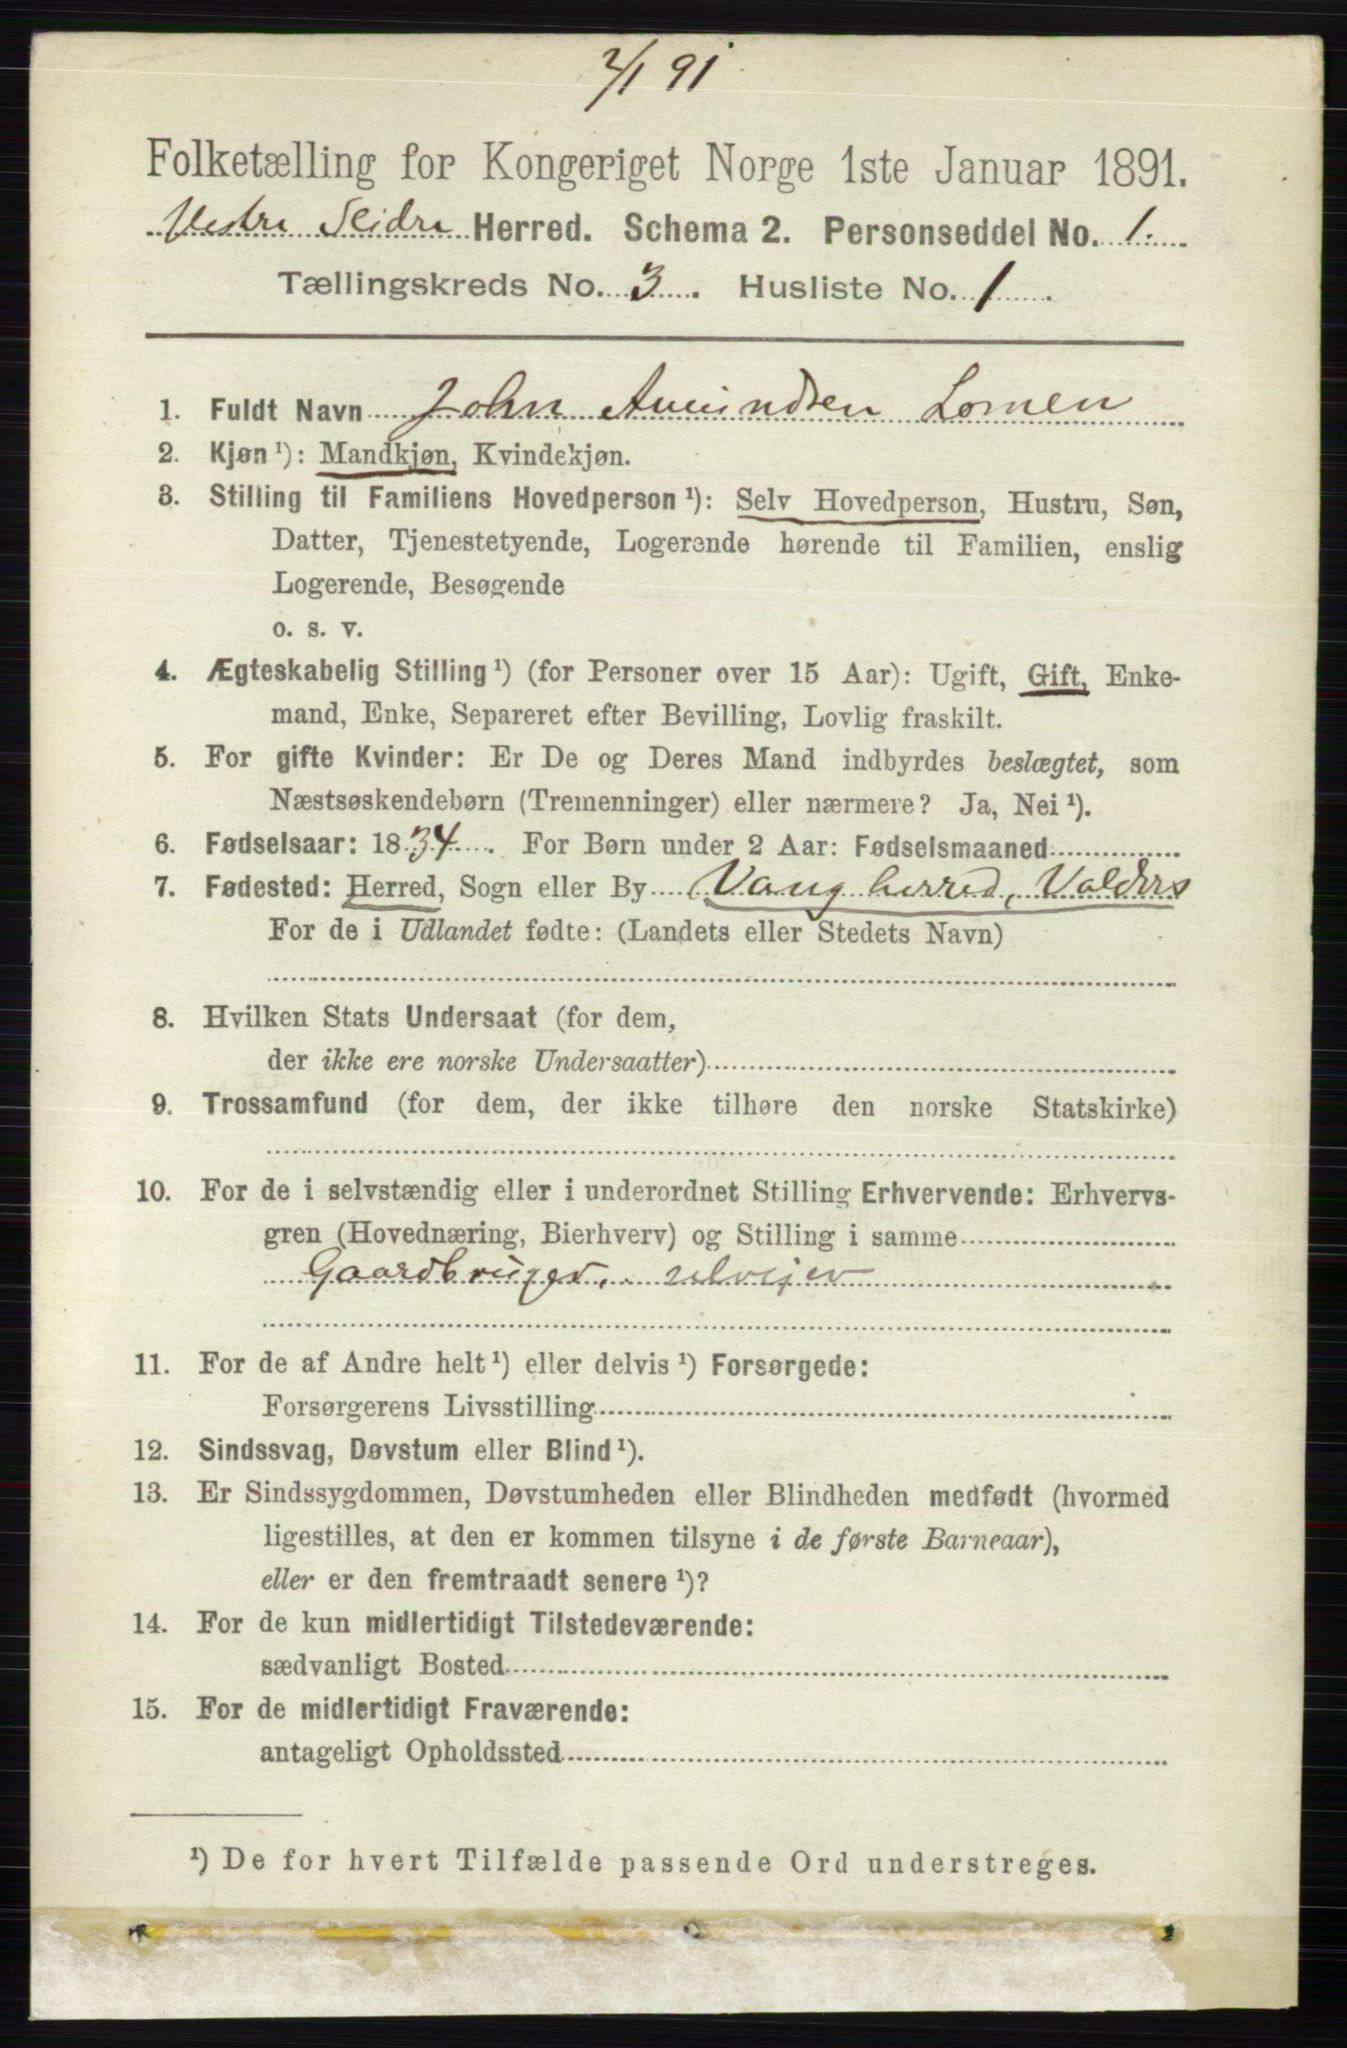 2/1 91
Folketælling for Kongeriget Norge 1ste Januar 1891.
Vestre Slidre Herred. Schema 2. Personseddel No. 1.
Tællingskreds No. 3. Husliste No. 1.
1. Fuldt Navn John Amundsen Lomen
2. Kjøn ¹): Mandkjøn, Kvindekjøn.
3. Stilling til Familiens Hovedperson ¹): Selv Hovedperson, Hustru, Søn,
Datter, Tjenestetyende, Logerende hørende til Familien, enslig
Logerende, Besøgende
o. s. v.
4. Ægteskabelig Stilling ¹) (for Personer over 15 Aar): Ugift, Gift, Enke-
mand, Enke, Separeret efter Bevilling, Lovlig fraskilt.
5. For gifte Kvinder: Er De og Deres Mand indbyrdes beslægtet, som
Næstsøskendebørn (Tremenninger) eller nærmere? Ja, Nei ¹).
6. Fødselsaar: 1834. For Børn under 2 Aar: Fødselsmaaned
7. Fødested: Herred, Sogn eller By Vang herred, Valders
For de i Udlandet fødte: (Landets eller Stedets Navn)
8. Hvilken Stats Undersaat (for dem,
der ikke ere norske Undersaatter)
9. Trossamfund (for dem, der ikke tilhøre den norske Statskirke)
10. For de i selvstændig eller i underordnet Stilling Erhvervende: Erhvervs-
gren (Hovednæring, Bierhverv) og Stilling i samme
Gaardbruger, selveier
11. For de af Andre helt ¹) eller delvis ¹) Forsørgede:
Forsørgerens Livsstilling
12. Sindssvag, Døvstum eller Blind ¹).
13. Er Sindssygdommen, Døvstumheden eller Blindheden medfødt (hvormed
ligestilles, at den er kommen tilsyne i de første Barneaar),
eller er den fremtraadt senere ¹)?
14. For de kun midlertidigt Tilstedeværende:
sædvanligt Bosted
15. For de midlertidigt Fraværende:
antageligt Opholdssted
¹) De for hvert Tilfælde passende Ord understreges.